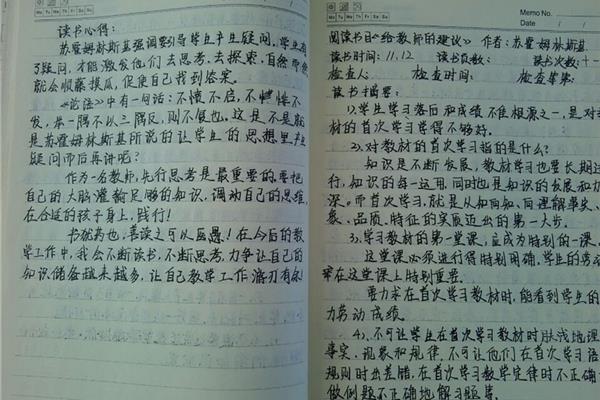 Mo Tu We Th Fr Sa Su
读书心得：
苏霍姆林斯基强调要引导学生产生疑问，学生有
了疑问，才能激发他们去思考，去探索，自然而然
就会顺藤摸瓜，促使自己找到答案。
《论语》中有一句话：不愤不启，不悱不
发，举一隅不以三隅反，则不复也。这是不是就
是苏霍姆林斯基所说的让学生的思想里产生
疑问而后再讲呢？
作为一名教师，先行思考是最重要的，要把
自己的大脑灌输足够的知识，调动自己的思维，
在合适的孩子身上，践行！
书犹药也，善读之可以医愚！在今后的教
学工作中，我会不断读书，不断思考，力争让自己的
知识储备越来越多，让自己教学工作游刃有余！
Mo Tu We Th Fr Sa Su
Memo No.
Date / /
阅读书目《给教师的建议》 作者：苏霍姆林斯基
读书时间：11.12 读书页数： 读书次数：十
检查人： 检查时间： 检查等第：
读书摘要：
1、学生学习落后和成绩不佳根源之一，是对教
材的首次学习学得不够好。
2、对教材的首次学习指的是什么？
知识是不断发展，教材学习也要长期进
行，知识的每一运用，同时也是知识的发展和加
深。而首次学习，就是从不知向知、向理解事实、
象、品质、特征的实质迈出的第一大步。
3、学习教材的第一堂课，应成为特别的一课。
这堂课必须进行得特别明确，学生的劳动
率在这堂课上特别重要。
要力求在首次学习教材时，能看到学生的
力劳动成绩。
4、不可让学生在首次学习教材时肤浅地理
事实、现象和规律，不可让他们在首次学习语
规则时出差错，在首次学习数学定律时不正确
做例题不正确地解习题等。